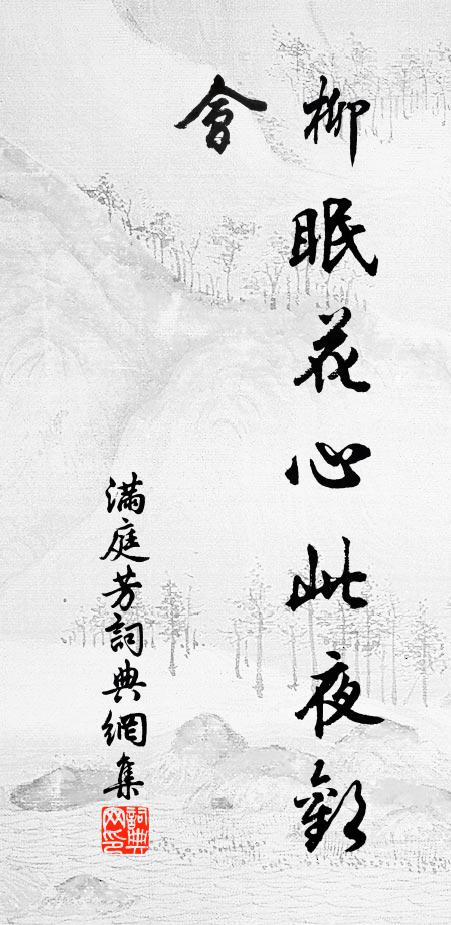 柳眠花心此夜歡
會
滿庭芳詞典網集
詞典
网印